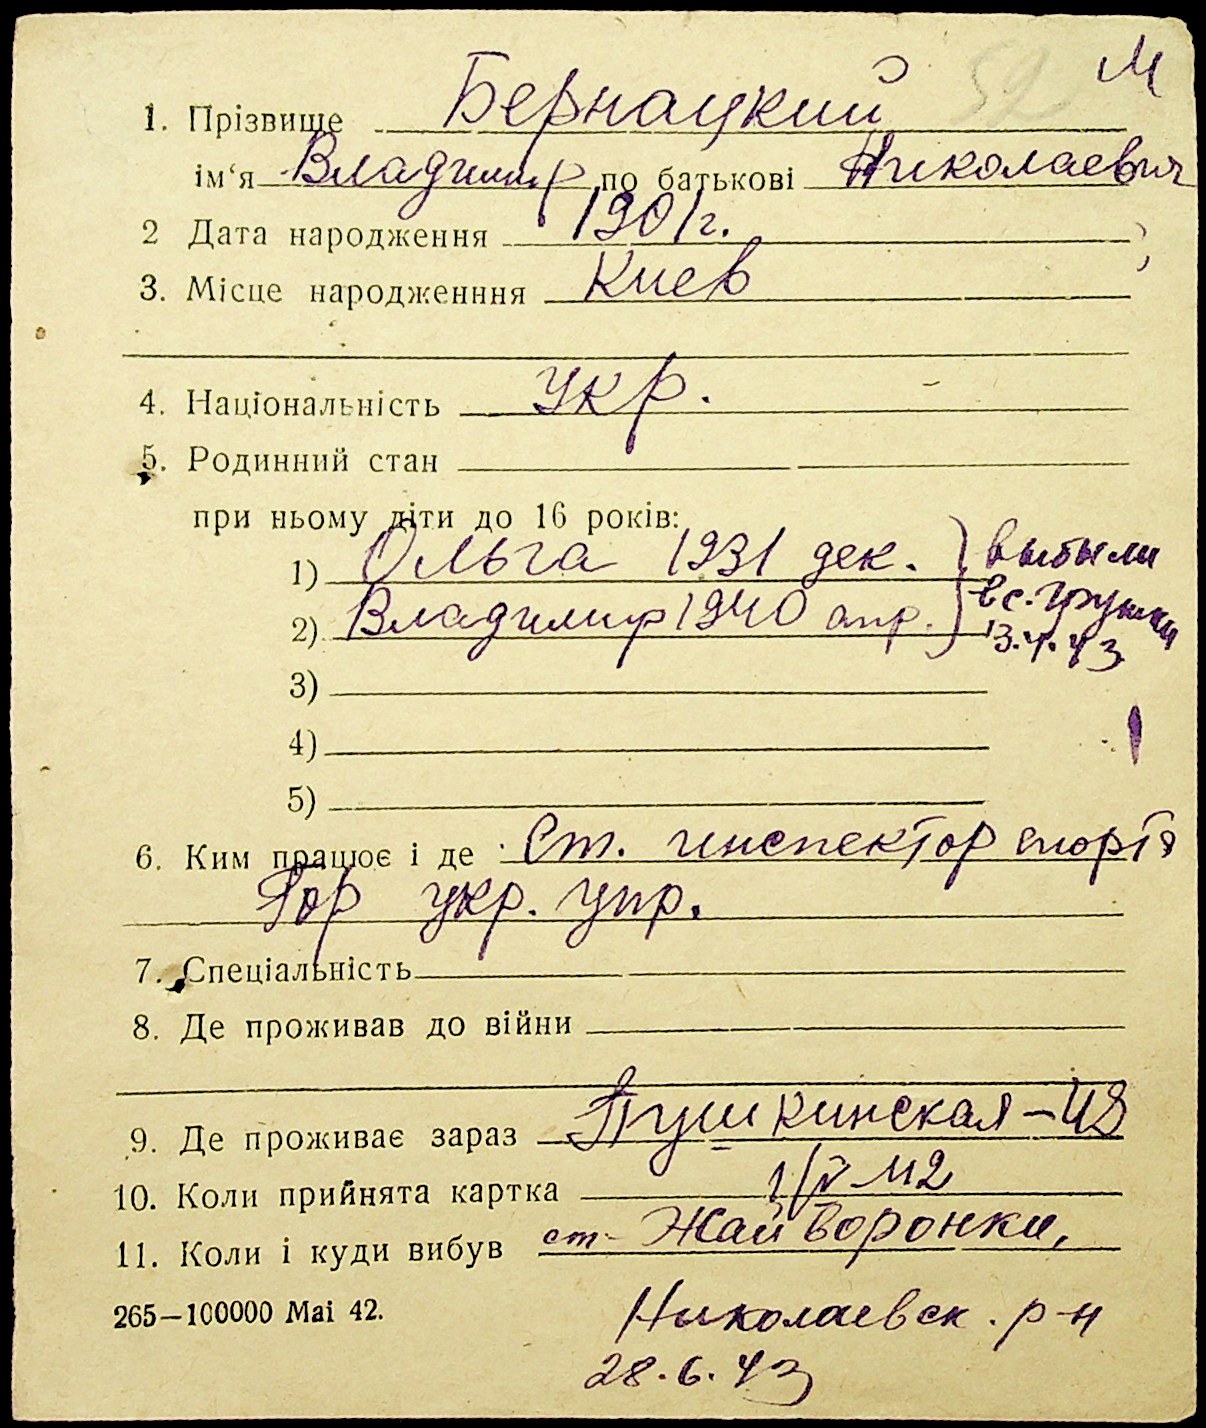 52 М
1. Прізвище Бернацкий
ім‘я Владимир по батькові Николаевич
2 Дата народження 1901г.
3. Місце народженння Киев
4. Національність Укр.
5. Родинний стан
при ньому діти до 16 років:
1) Ольга 1931 дек. } выбыли
2) Владимир 1940 апр. в с. Грушки
13.4.43
3)
4)
5)
6. Ким працює і де Ст. инспектор спорта
Гор укр. упр.
7. Спеціальність
8. Де проживав до війни
9. Де проживає зараз Пушкинская–
10. Коли прийнята картка
11. Коли і куди вибув ст. Жайворонки,
265—100000 Маі 42.
Николаевск. р-н
28.6.43